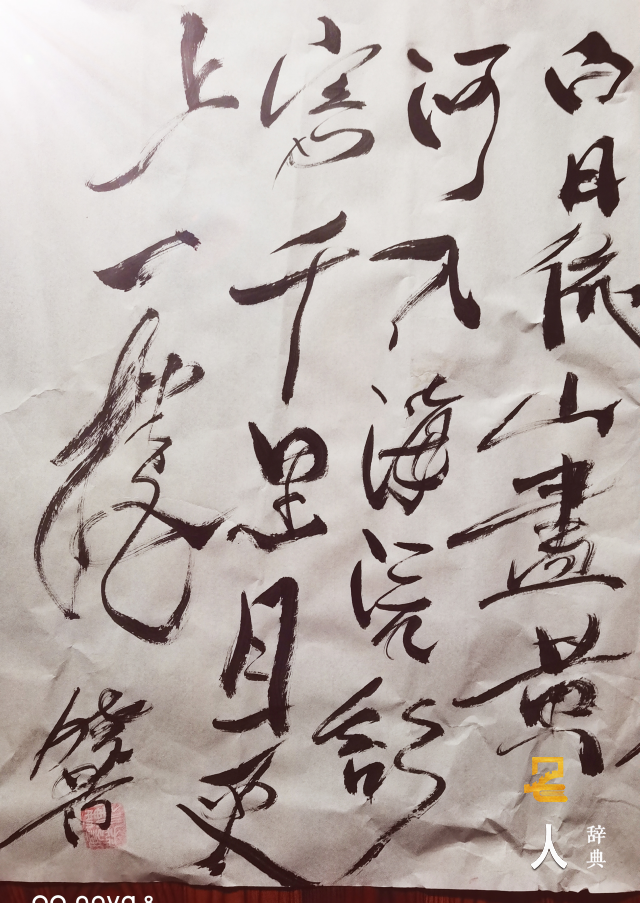 白日依山盡黄
河入海流欲
穷千里目更
上一层楼
名人
辞典
nova 8